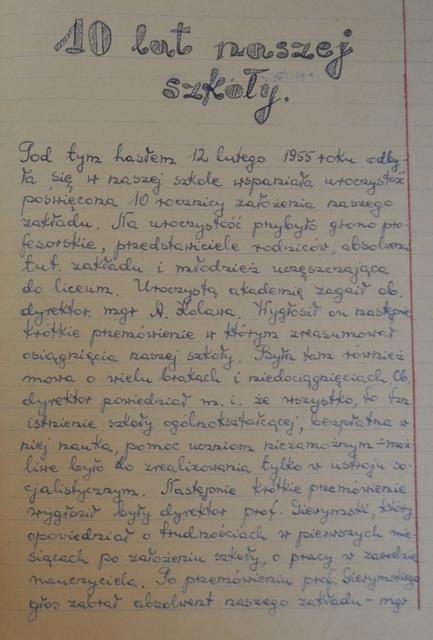 10 lat naszej
szkoły.
Pod tym hasłem 12 lutego 1955 roku odby-
ła się w naszej szkole wspaniała uroczystość
poświęcona 10 rocznicy założenia naszego
zakładu. Na uroczystość przybyło grono pro-
fesorskie, przedstawiciele rodziców, absolwenci
tut. zakładu i młodzież uczęszczająca
do liceum. Uroczystą akademię zagaił ob.
dyrektor, mgr A. Kolawa. Wygłosił on następnie
krótkie przemówienie w którym zreasumował
osiągnięcia naszej szkoły. Była tam również
mowa o wielu brakach i niedociągnięciach. Ob.
dyrektor powiedział m. i. że wszystko, to tzn
istnienie szkoły ogólnokształcącej, bezpłatna w
niej nauka, pomoc uczniom niezamożnym - moż-
liwe było do zrealizowania tylko w ustroju so-
cjalistycznym. Następnie krótkie przemówienie
wygłosił były dyrektor prof. Gierymski, który
opowiedział o trudnościach w pierwszych mie-
siącach po założeniu szkoły, o pracy w zawodzie
nauczyciela. Po przemówieniu prof. Gierymskiego
głos zabrał absolwent naszego zakładu - mgr